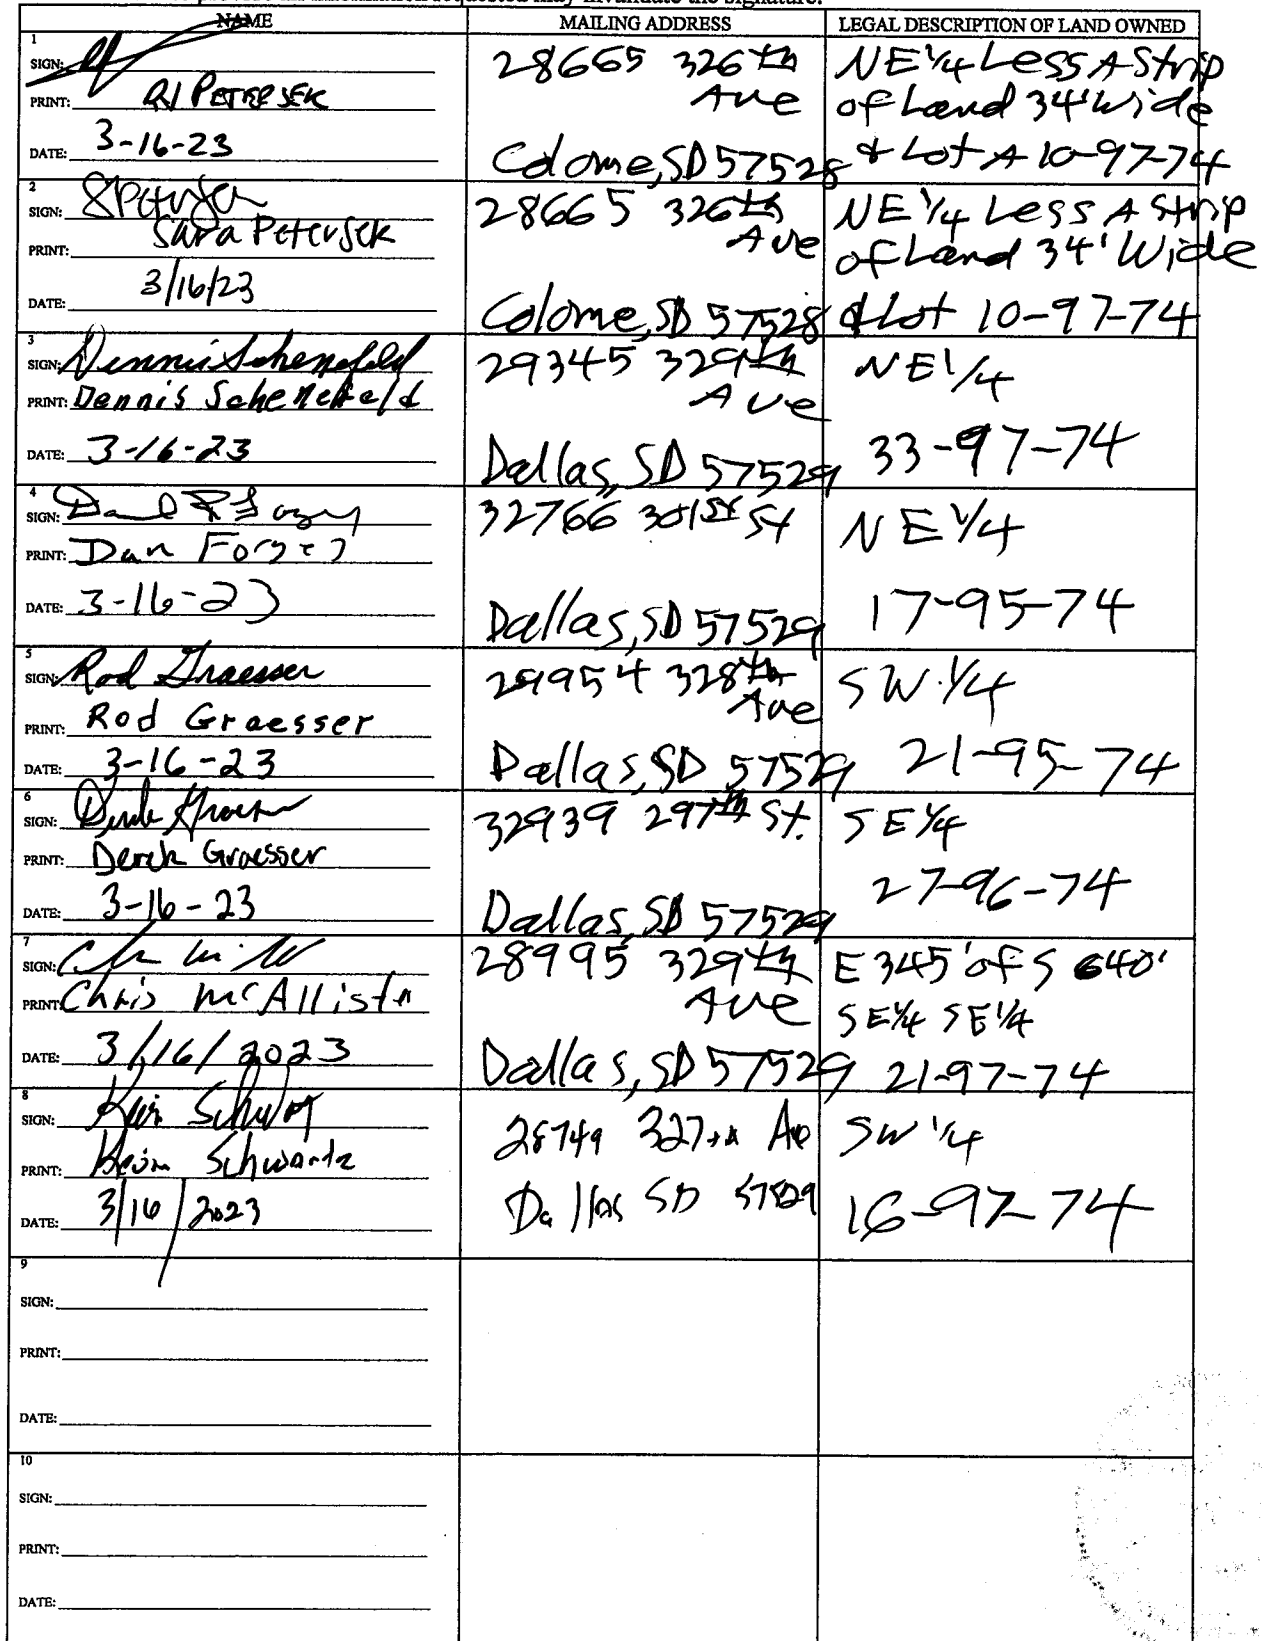 may invalidate the signature.
NAME MAILING ADDRESS LEGAL DESCRIPTION OF LAND OWNED
1
SIGN:
PRINT: RJ PETERSEK
DATE: 3-16-23
28665 326th
Ave
Colome, SD 57528
NE 1/4 Less A Strip
of Land 34' Wide
& Lot A 10-97-74
2
SIGN: S Petersek
PRINT: Sara Petersek
DATE: 3/16/23
28665 326th
Ave
Colome, SD 57528
NE 1/4 Less A Strip
of Land 34' Wide
& Lot 10-97-74
3
SIGN: Dennis Schenefeld
PRINT: Dennis Schenefeld
DATE: 3-16-23
29345 329th
Ave
Dallas, SD 57529
NE 1/4
33-97-74
4
SIGN:
PRINT: Dan Forgey
DATE: 3-16-23
32766 301st St
Dallas, SD 57529
NE 1/4
17-95-74
5
SIGN: Rod Graesser
PRINT: Rod Graesser
DATE: 3-16-23
29954 328th
Ave
Dallas, SD 57529
SW 1/4
21-95-74
6
SIGN: Derek Graesser
PRINT: Derek Graesser
DATE: 3-16-23
32939 297th St.
Dallas, SD 57529
SE 1/4
27-96-74
7
SIGN:
PRINT: Chris McAllister
DATE: 3/16/2023
28995 329th
Ave
Dallas, SD 57529
E 345' of S 640'
SE 1/4 SE 1/4
21-97-74
8
SIGN: Kevin Schwartz
PRINT: Kevin Schwartz
DATE: 3/16/2023
28749 327th Ave
Dallas SD 57529
SW 1/4
16-97-74
9
SIGN:
PRINT:
DATE:
10
SIGN:
PRINT:
DATE: